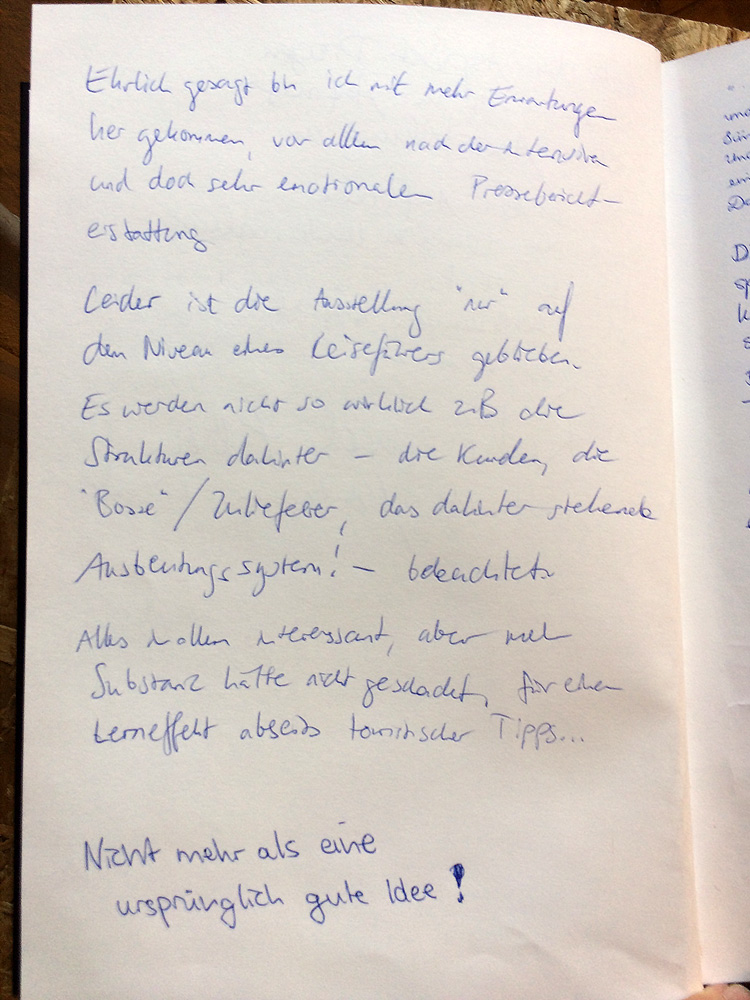 Ehrlich gesagt bin ich mit mehr Erwartungen
her gekommen, vor allem nach der intensiven
und doch sehr emotionalen Pressebericht-
erstattung
Leider ist die Ausstellung "nur" auf
dem Niveau eines Reiseführers geblieben.
Es werden nicht so wirklich zB die
Strukturen dahinter – die Kunden, die
"Bosse" / Zulieferer, das dahinter stehende
Ausbeutungssystem! – beleuchtet.
Alles in allem interessant, aber mehr
Substanz hätte nicht geschadet, für einen
Lerneffekt abseits touristischer Tipps...
Nicht mehr als eine
ursprünglich gute Idee!